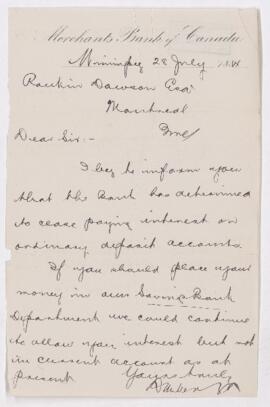 Merchants Bank of Canada
Winnipeg 28 July
Rankin Dawson Esq
Montreal
Dear Sir:-
I beg to inform you
that the Bank has determined
to cease paying interest on
ordinary deposit accounts.
If you should place your
money in our Savings Bank
Department we could continue
to allow you interest but not
in current account as at
present
Yours truly